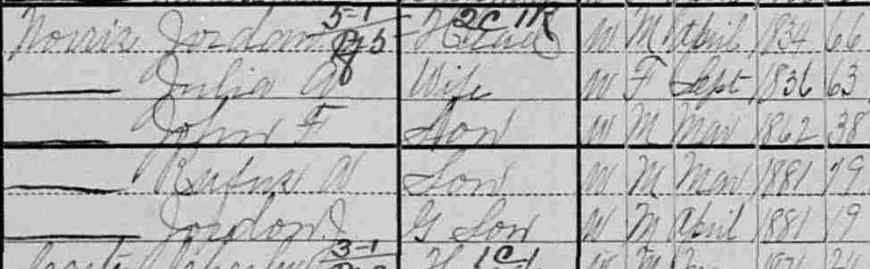 5-1 2C 1R
Norris Jordan Head W M April 1834 66
Julia A Wife W F Sept 1836 63
John F Son W M Mar 1862 38
Rufus A Son W M Mar 1881 19
Jordon J G Son W M April 1881 19
3-1 1C1